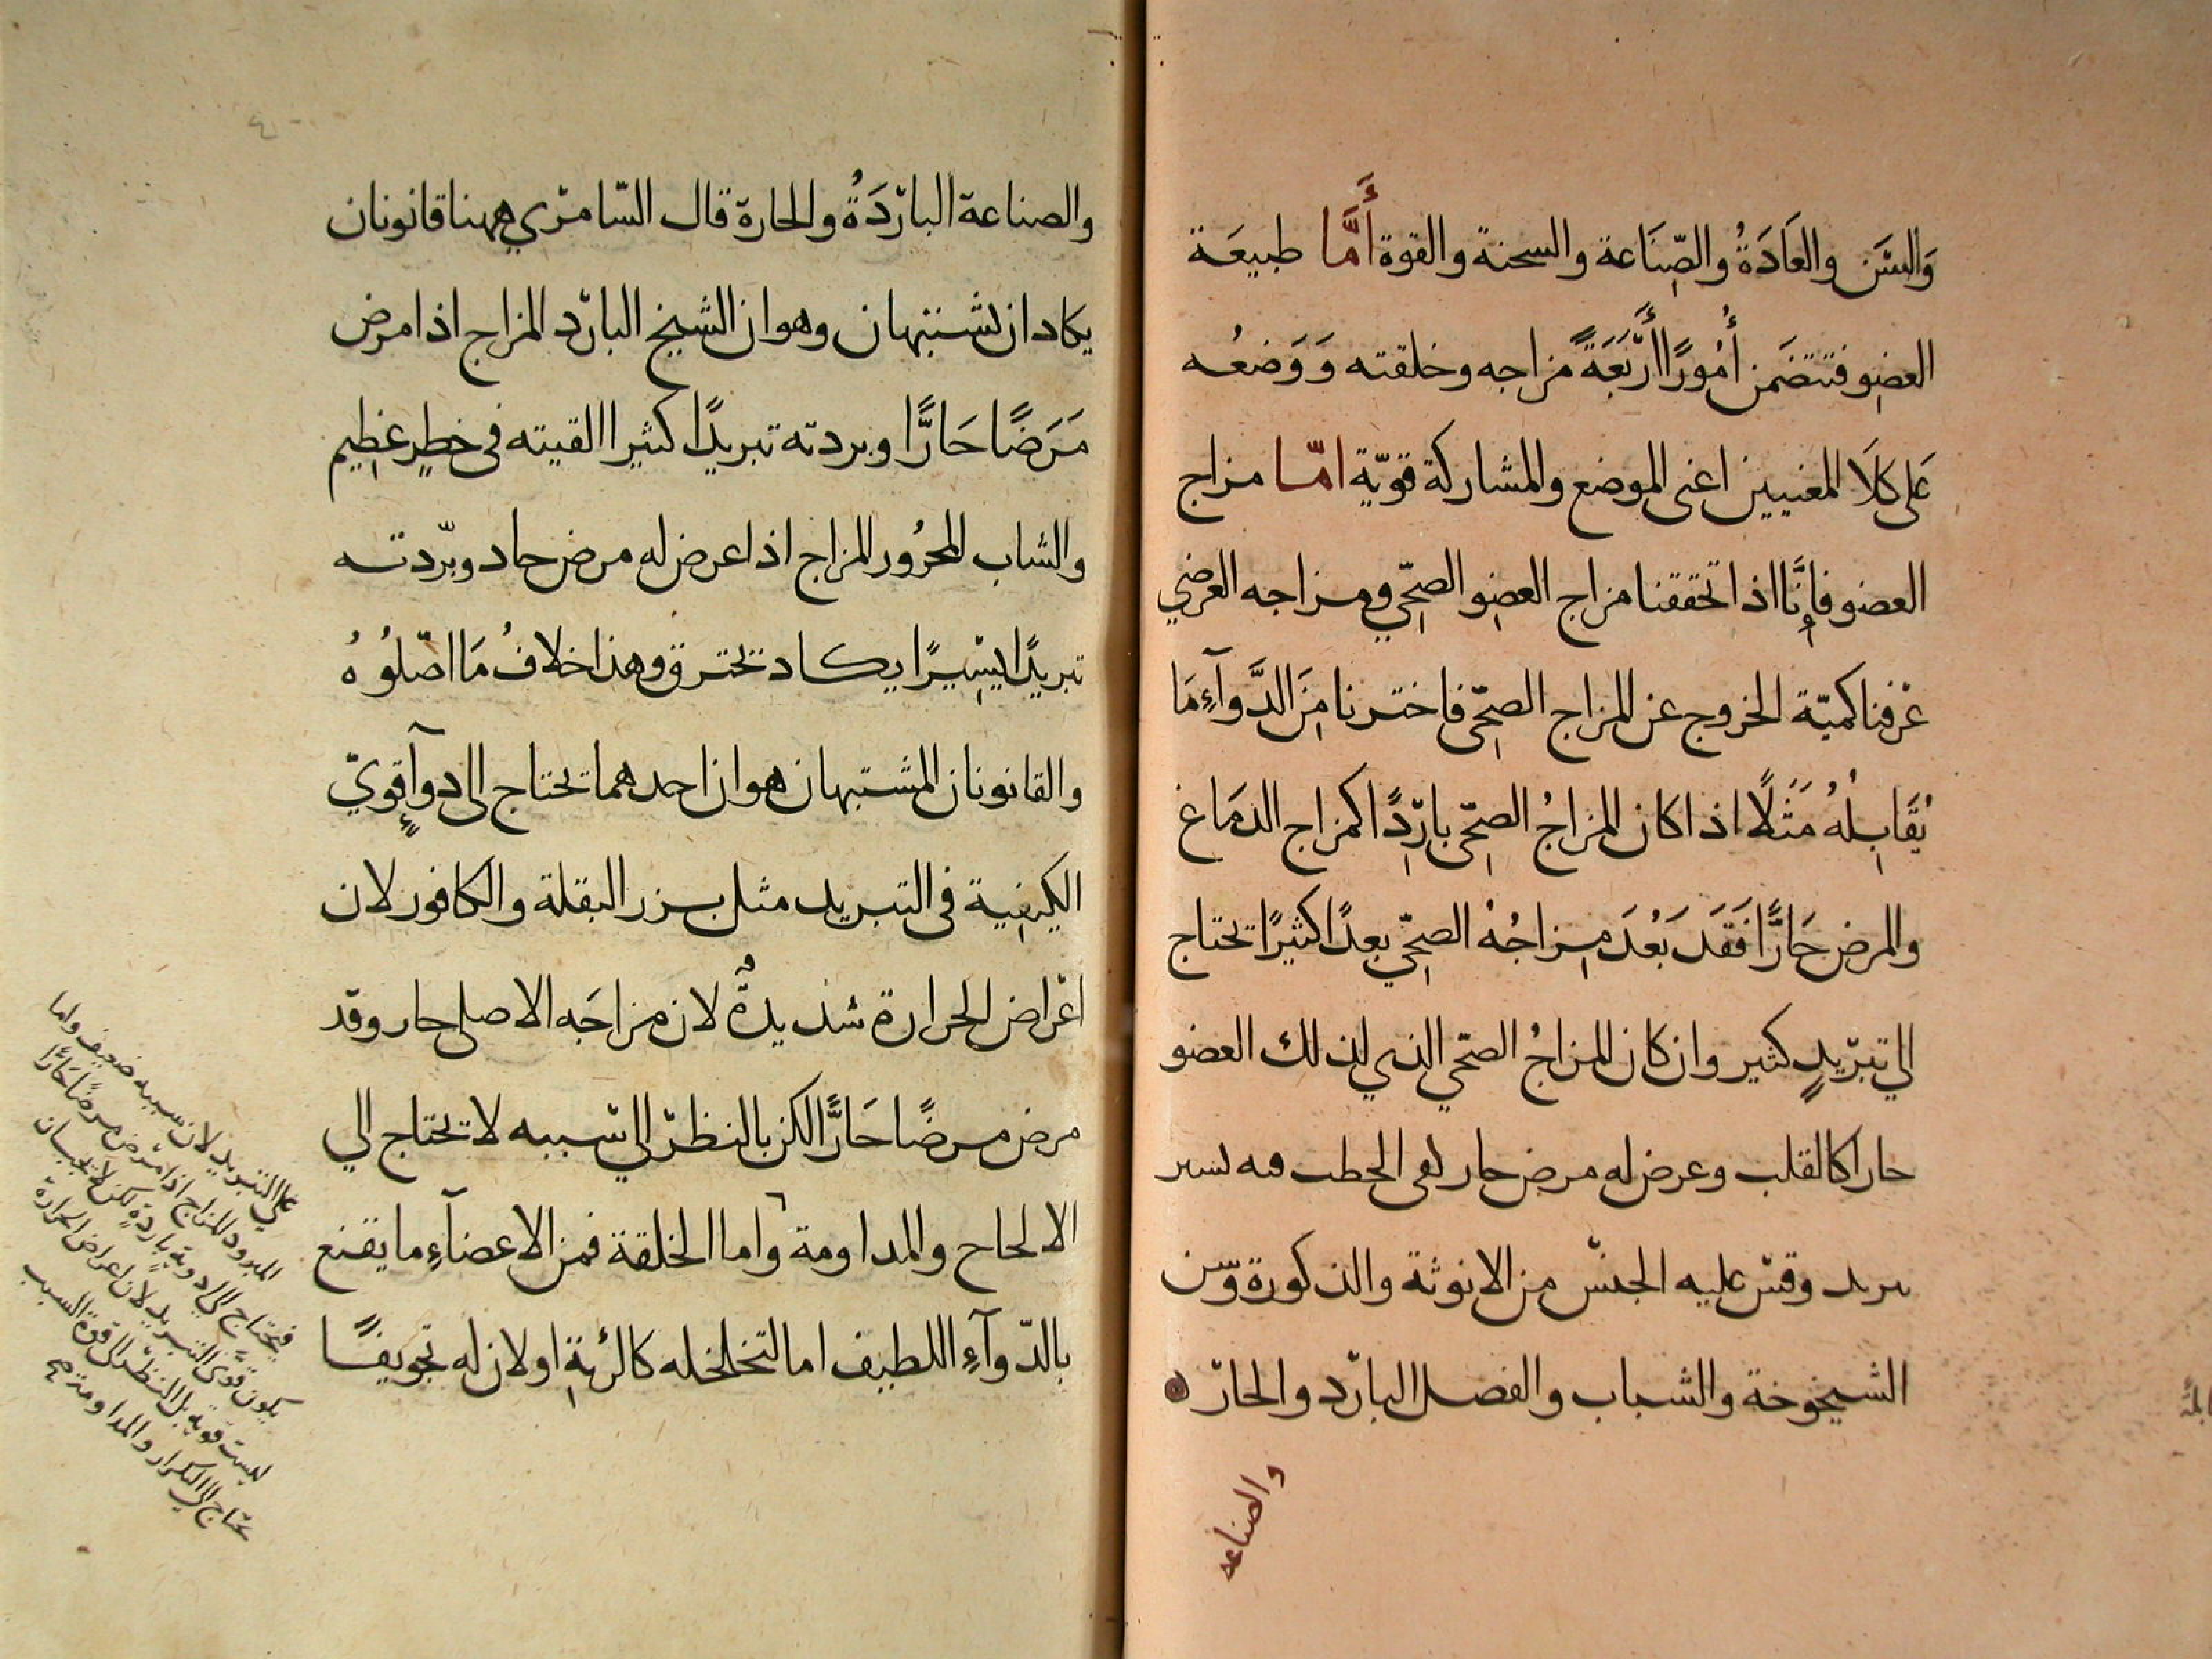 وَالسِّن والعَادَةُ والصِّنَاعة والسحنة والقوة أَمَّا طبيعَة
العضو فتتضمَن أُمُورًا أَرْبَعَةً مزاجه وخلقته وَوَضعُه
عَلى كلَا المعنيين اعنى الموضع والمشاركة قوّية امّا مزاج
العضو فاِنَّا اذا تحققنا مزاج العضو الصحّي ومزاجه العرضي
عرفنا كميّة الخروج عن المزاج الصحّى فاخترنا مِنَ الدَّوآءِ مَا
يُقَابِلُهُ مَثَلًا اذا كان المزاجُ الصحّى بارِدًا كمزاج الدمَاغ
والمرض حَارًّا فَقَد بَعُدَ مِزاجُهُ الصحّي بعدًا كثيرًا تحتاج
الي تبريدٍ كثير وان كان المزاجُ الصحّي الذي لذلك العضو
حارا كالقلب وعرض له مرض حار لفى الحطب فيه يسير
تبريد وقس عليه الجنس من الانوثة والذكورة وسن
الشيخوخة والشباب والفصل البارد والحارّ
والصناعه
والصناعة البارْدَةُ والحارة قال السّامرْي ههنا قانونان
يكاد ان يشتبهان وهو ان الشيخ البارد المزاج اذا مرض
مَرَضًا حَارًّا وبردته تبريدًا كثيرا القيته فى خطرٍ عظيم
والشاب المحرُور المزاج اذا عرض له مرض حاد وبرّدته
تبريدًا يسِيرًا يكاد تحترق وهذا خلافُ مَا اصّلوُهُ
والقانونان المشتبهان هو ان احدهما تحتاج الى دوآءٍ قويّ
الكيفية فى التبريد مثل بزر البقلة والكافور لان
اعْراض الحرارة شديدةٌ لان مزاجَه الاصلى حار وقد
مرض مرضًا حَارًّا لكن بالنظر الي سَببه لا تحتاج الي
الالحاح والمداومة واما الخلقة فمن الاعضآءِ ما يقنع
بالدّوآءِ اللطيف اما لتخلخله كالرئةِ او لان له تجويفًا
على التبريد لان سببه ضعيف واما
المبرود المزاج اذا مرض مرضًا حَارًّا
فيحتاج الي ادوية باردةٍ لكن لا يجب ان
يكون قوّى التبريد لان اعراض الحرارة
ليست قوية بل بالنظر الى قوة السبب
تحتاج الي التكرار والمداومة صح